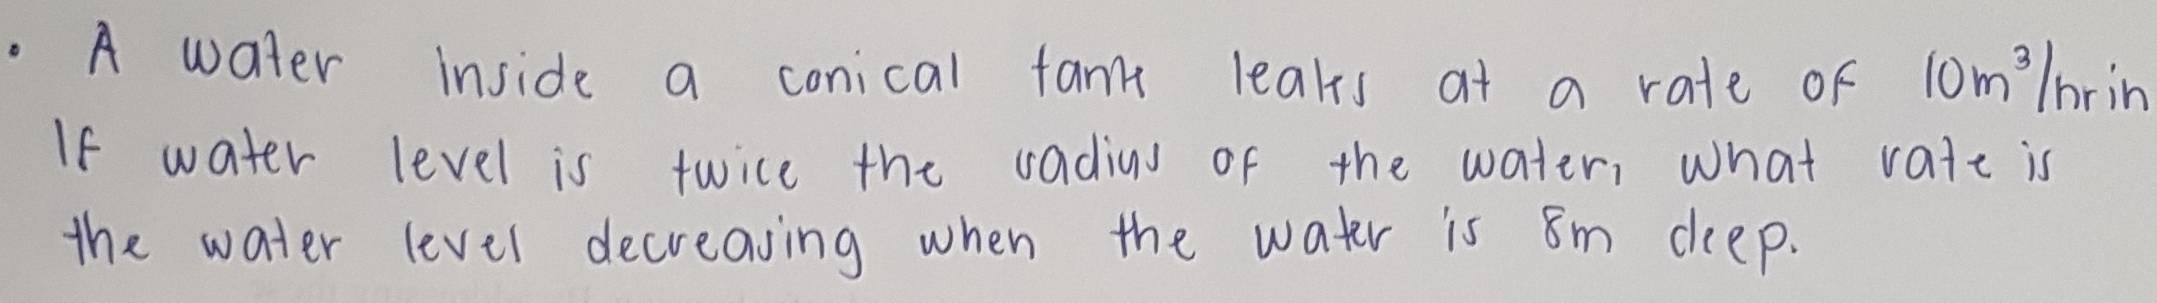 • A water inside a conical tank leaks at a rate of 10m³/hrin
If water level is twice the radius of the water, what rate is
the water level decreasing when the water is 8m deep.